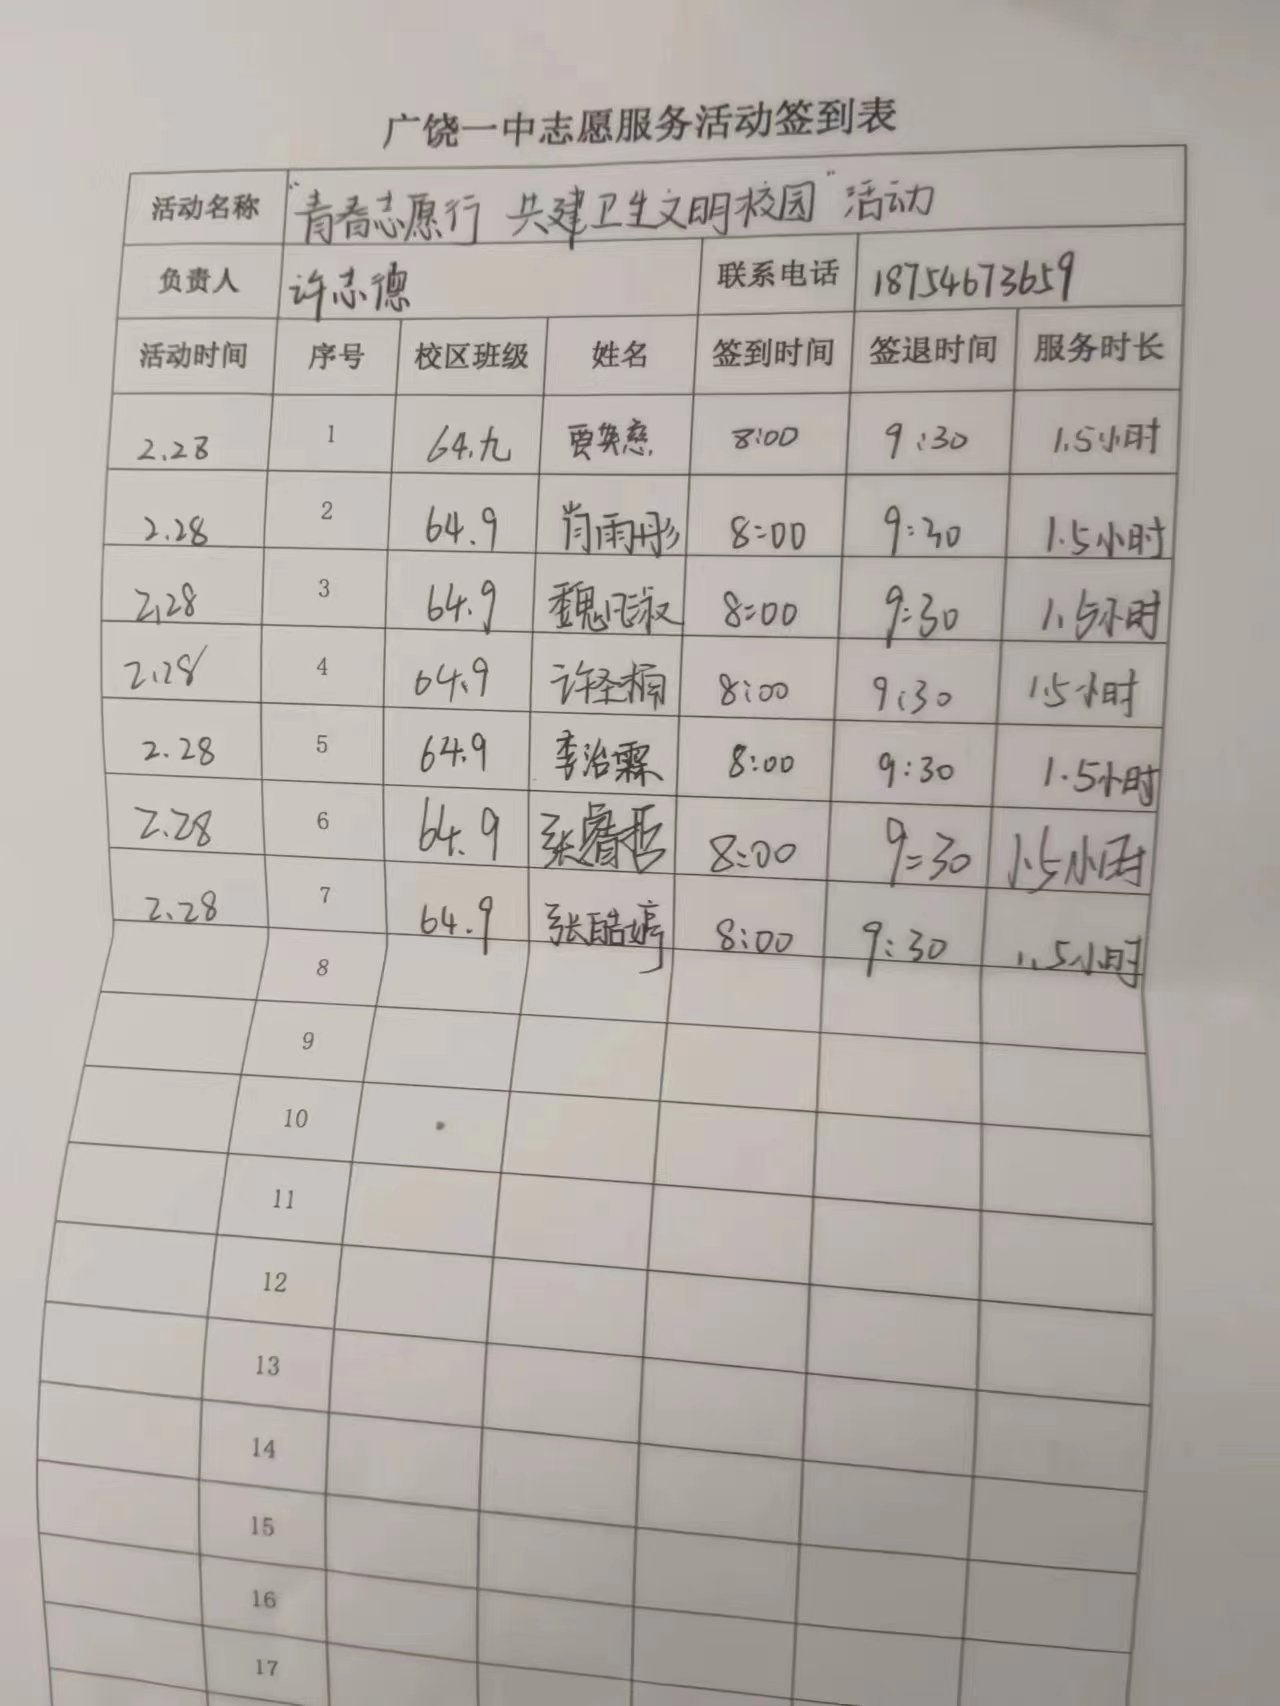 广饶一中志愿服务活动签到表
活动名称 "青春志愿行 共建卫生文明校园"活动
负责人 许志德 联系电话 18754673659
活动时间 序号 校区班级 姓名 签到时间 签退时间 服务时长
2.28 1 64.九 8:00 9:30 1.5小时
2.28 2 64.9 肖雨彤 8:00 9:30 1.5小时
2.28 3 64.9 8:00 9:30 1.5小时
2.28 4 64.9 许圣楠 8:00 9:30 1.5小时
2.28 5 64.9 李治霖 8:00 9:30 1.5小时
2.28 6 64.9 张睿哲 8:00 9:30 1.5小时
2.28 7 64.9 张皓婷 8:00 9:30 1.5小时
8
9
10
11
12
13
14
15
16
17